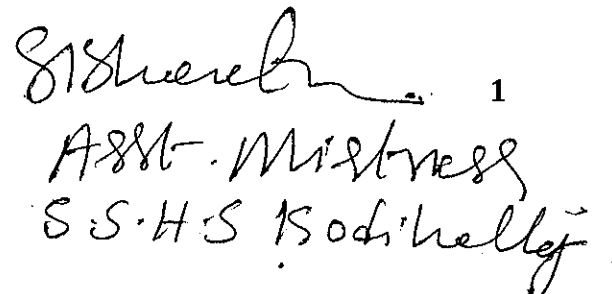 1
Asst. Mistress
S.S.H.S Kodihally